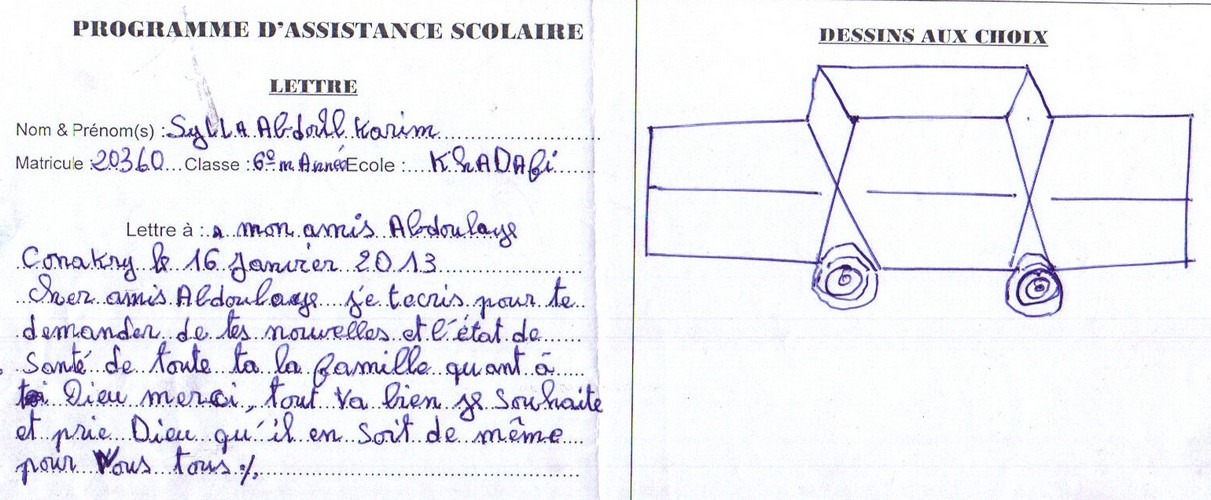 PROGRAMME D'ASSISTANCE SCOLAIRE
LETTRE
Nom & Prénom(s) : Sylla Abdoul Karim
Matricule : 20360 Classe : 6èm Année Ecole : KhADAfi
Lettre à : a mon amis Abdoulaye
Conakry le 16 Janvier 2013
Cher amis Abdoulaye je t'ecris pour te
demander de tes nouvelles et l'état de
Santé de toute ta la famille quant à
toi Dieu merci, tout va bien je Souhaite
et prie Dieu qu'il en soit de même
pour Vous tous ./.
DESSINS AUX CHOIX